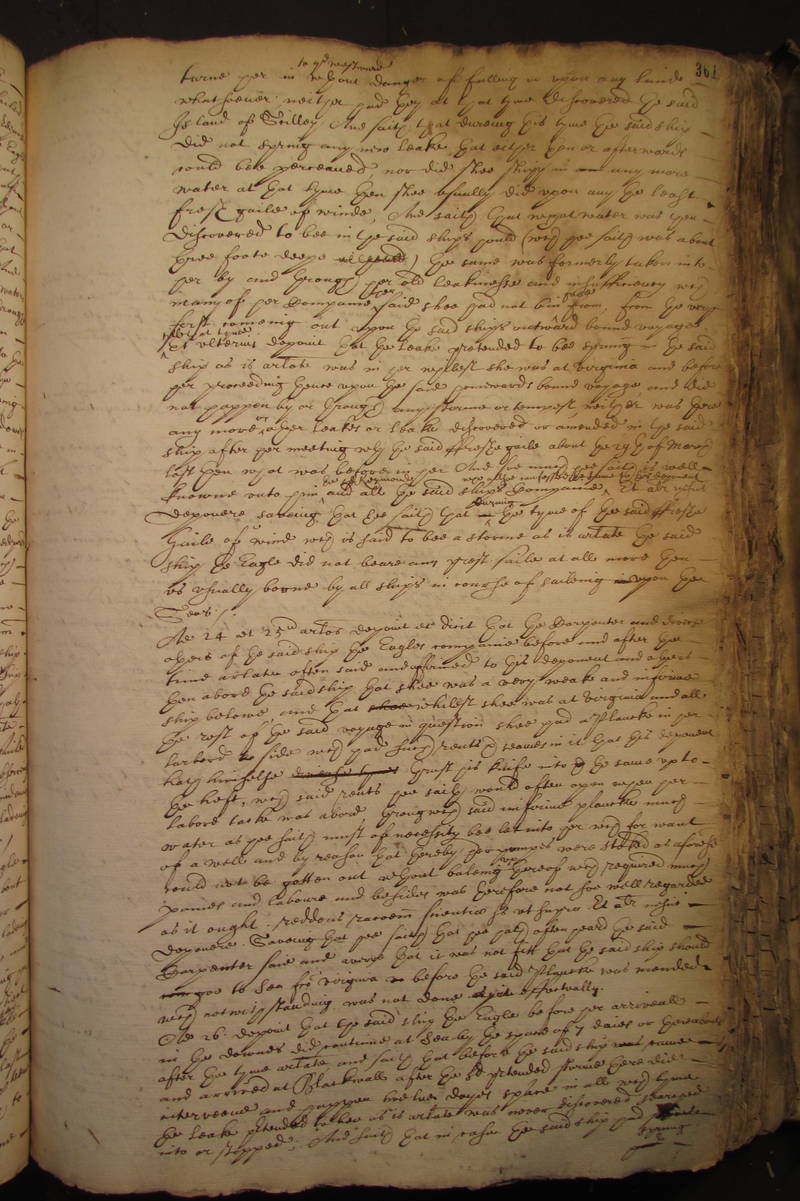 361
to ye westward
turne her in without danger of falling in upon any lande
whatsoever neither had they at that tyme discovered the said
Island of Scilley And saith that dureing his tyme the said ship
did not spring any new leake that either then or afterwards
could bee perceaved, nor did shee shipp in any more
water at that tyme then shee usually did upon any the least
fresh gaile of winde, And saith that what water was then
discovered to bee in the said ships hould (which hee saith was about
three foote deepe) the same was formerly taken into
her by and through her old leakinesse and insufficiency which
many of her Companie said shee had not bin free from, from the very
first comeing out upon the said ships outward bound voyage
Et ulterius deponit that the leake pretended to bee sprung in the said
ship as is arlate was in her whilest she was at Virginia and before
her proceeding thence upon the said homewards bound voyage and did
not happen by or through any storme or tempest neither was there
any more or other leakes or leake discovered or amended in the said
ship after her meeting with the said ffreshe gaile about the 9th of March
last then what was before in her And soe much hee saith is well
knowne unto him and all the said ships Companie Et aliter nescit
deponere saveing that hee saith that dureing the tyme of the said ffreshe
Gaile of wind which is said to bee a storme as is arlate the said
ship the Eagle did not beare any prest saile at all more then
is usually borne by all ships in course of saileing upon the
Seas./
Ad 24 et 25 artos deponit et dicit that the Carpenter and divers
others of the said ship the Eagles companie before and after the
time arlate often said and affirmed to this deponent and others
then abord the said ship that shee was a very weake and infirme
ship belowe, and that whilest shee was at Virginia and all
the rest of the said voyage in question shee had a Plancke in her
larbord side which had such rents and seames in it that this deponent
hath himselfe thrust his knife into the same up to
the heft, which said rents hee saith would often open when her
labord tacke was abord through which said infirme plancke much
water as hee saith must of necessity bee let into her which for want
of a well and by reason that thereby her pumpes were stoked at aforesaid
could not be gotten out without baleing thereof which required much
paines and laboure and besides was therefore not soe well regarded
as it ought: reddens racoem scientia ut supra Et aliter nescit
deponere. Saveing that hee saith that hee hath often heard the said
Carpenter sare and averr that it was not fitt that the said ship should
goe to Sea from Virginia before the said Plancke was mended
which notwithstanding was not done effectually.
Ad 26 deponit that the said ship the Eagle before her arriveall
in the downes did continue at Sea by the space of 7 daies or thereabouts
after the tyme arlate and saith that before the said ship came
and arrived at Blackwall after the said pretended storme there did
interveene and happen twelve dayes space in all which tyme
the leake pretended to bee as is arlate was never discovered searched
into or stopped: And saith that in case the said ship had
sprung